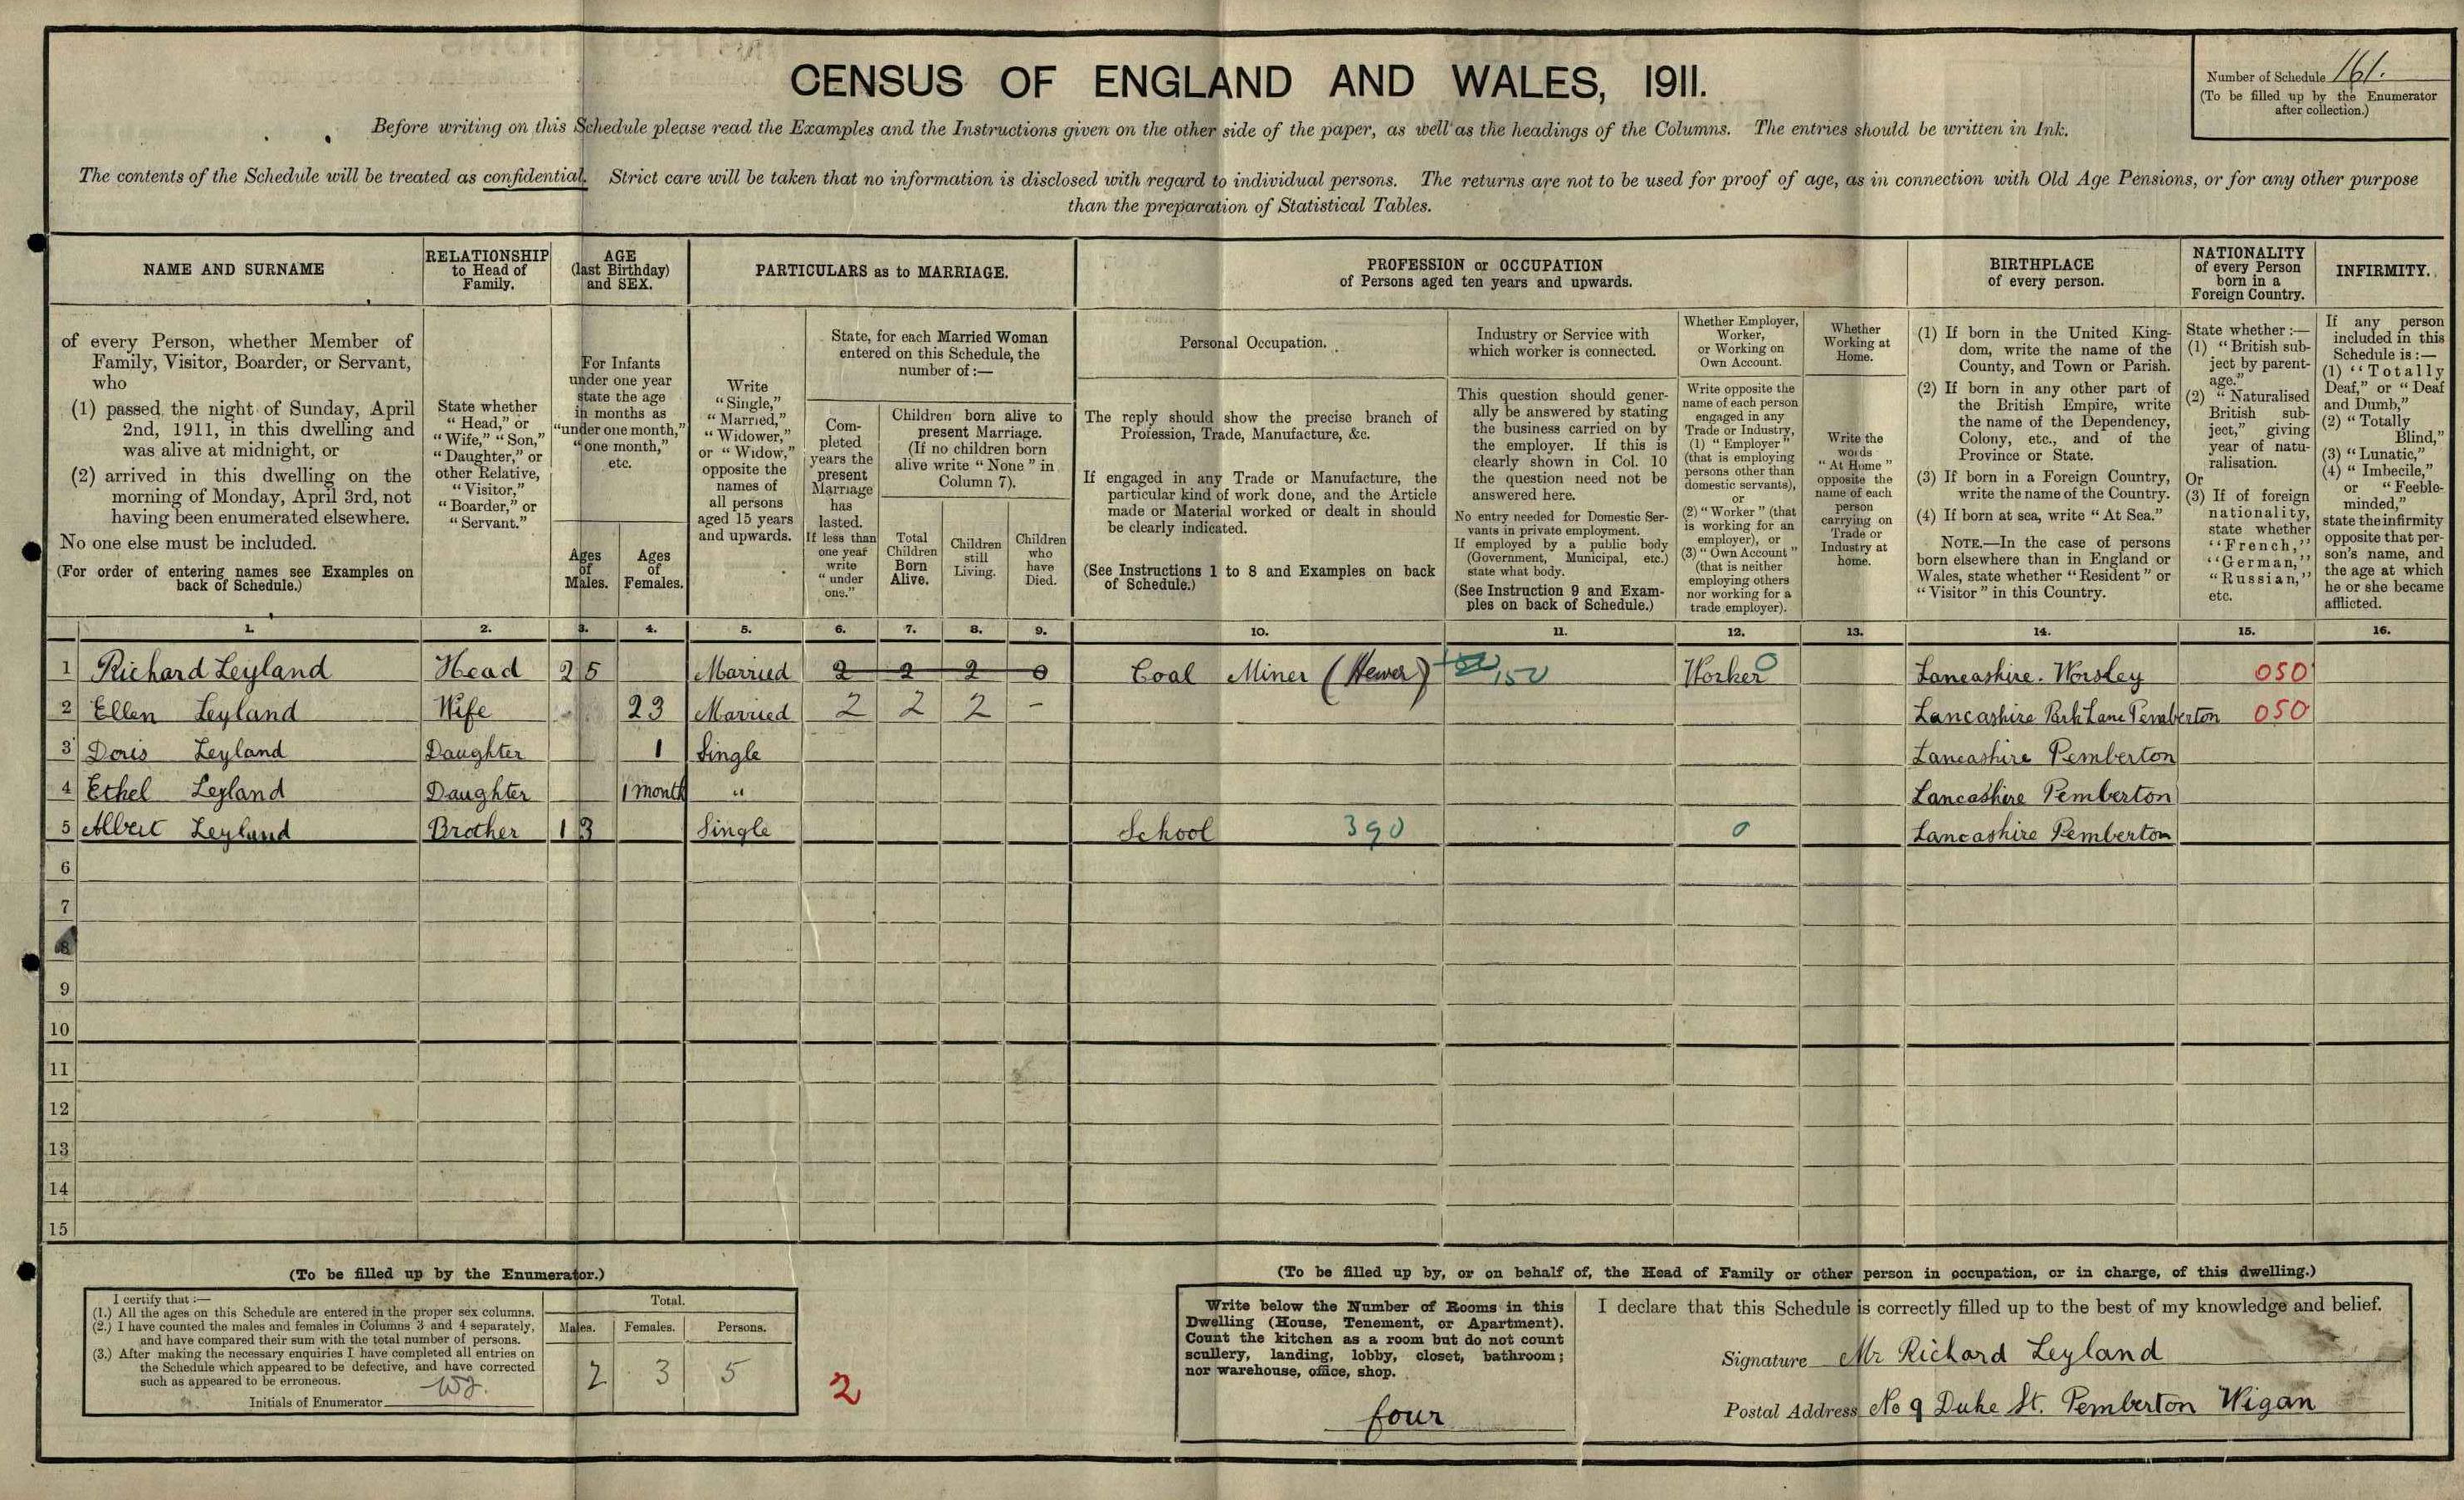 CENSUS OF ENGLAND AND WALES, 1911.
Number of Schedule 161.
(To be filled up by the Enumerator
after collection.)
Before writing on this Schedule please read the Examples and the Instructions given on the other side of the paper, as well as the headings of the Columns. The entries should be written in Ink.
The contents of the Schedule will be treated as confidential. Strict care will be taken that no information is disclosed with regard to individual persons. The returns are not to be used for proof of age, as in connection with Old Age Pensions, or for any other purpose
than the preparation of Statistical Tables.
NAME AND SURNAME
of every Person, whether Member of
Family, Visitor, Boarder, or Servant,
who
(1) passed the night of Sunday, April
2nd, 1911, in this dwelling and
was alive at midnight, or
(2) arrived in this dwelling on the
morning of Monday, April 3rd, not
having been enumerated elsewhere.
No one else must be included.
(For order of entering names see Examples on
back of Schedule.)
RELATIONSHIP
to Head of
Family.
State whether
"Head," or
"Wife," "Son,"
"Daughter," or
other Relative,
"Visitor,"
"Boarder," or
"Servant."
AGE
(last Birthday)
and SEX.
For Infants
under one year
state the age
in months as
"under one month,"
"one month,"
etc.
Ages
of
Males.
Ages
of
Females.
PARTICULARS as to MARRIAGE.
Write
"Single,"
"Married,"
"Widower,"
or "Widow,"
opposite the
names of
all persons
aged 15 years
and upwards.
State, for each Married Woman
entered on this Schedule, the
number of:—
Com-
pleted
years the
present
Marriage
has
lasted.
If less than
one year
write
"under
one."
Children born alive to
present Marriage.
(If no children born
alive write "None" in
Column 7).
Total
Children
Born
Alive.
Children
still
Living.
Children
who
have
Died.
PROFESSION or OCCUPATION
of Persons aged ten years and upwards.
Personal Occupation.
The reply should show the precise branch of
Profession, Trade, Manufacture, &c.
If engaged in any Trade or Manufacture, the
particular kind of work done, and the Article
made or Material worked or dealt in should
be clearly indicated.
(See Instructions 1 to 8 and Examples on back
of Schedule.)
Industry or Service with
which worker is connected.
This question should gener-
ally be answered by stating
the business carried on by
the employer. If this is
clearly shown in Col. 10
the question need not be
answered here.
No entry needed for Domestic Ser-
vants in private employment.
If employed by a public body
(Government, Municipal, etc.)
state what body.
(See Instruction 9 and Exam-
ples on back of Schedule.)
Whether Employer,
Worker,
or Working on
Own Account.
Write opposite the
name of each person
engaged in any
Trade or Industry,
(1) "Employer"
(that is employing
persons other than
domestic servants),
or
(2) "Worker" (that
is working for an
employer), or
(3) "Own Account"
(that is neither
employing others
nor working for a
trade employer).
Whether
Working at
Home.
Write the
words
"At Home"
opposite the
name of each
person
carrying on
Trade or
Industry at
home.
BIRTHPLACE
of every person.
(1) If born in the United King-
dom, write the name of the
County, and Town or Parish.
(2) If born in any other part of
the British Empire, write
the name of the Dependency,
Colony, etc., and of the
Province or State.
(3) If born in a Foreign Country,
write the name of the Country.
(4) If born at sea, write "At Sea."
NOTE.—In the case of persons
born elsewhere than in England or
Wales, state whether "Resident" or
"Visitor" in this Country.
NATIONALITY
of every Person
born in a
Foreign Country.
State whether:—
(1) "British sub-
ject by parent-
age."
(2) "Naturalised
British sub-
ject," giving
year of natu-
ralisation.
Or
(3) If of foreign
nationality,
state whether
"French,"
"German,"
"Russian,"
etc.
INFIRMITY.
If any person
included in this
Schedule is:—
(1) "Totally
Deaf," or "Deaf
and Dumb,"
(2) "Totally
Blind,"
(3) "Lunatic,"
(4) "Imbecile,"
or "Feeble-
minded,"
state the infirmity
opposite that per-
son's name, and
the age at which
he or she became
afflicted.
1. 2. 3. 4. 5. 6. 7. 8. 9. 10. 11. 12. 13. 14. 15. 16.
1 Richard Leyland Head 25 Married 2 2 2 0 Coal Miner (Hewer) 150 Worker 0 Lancashire. Worsley 050
2 Ellen Leyland Wife 23 Married 2 2 2 - Lancashire Park Lane Pemberton 050
3 Doris Leyland Daughter 1 Single Lancashire Pemberton
4 Ethel Leyland Daughter 1 month " Lancashire Pemberton
5 Albert Leyland Brother 13 Single School 390 0 Lancashire Pemberton
6
7
8
9
10
11
12
13
14
15
(To be filled up by the Enumerator.)
I certify that:—
(1.) All the ages on this Schedule are entered in the proper sex columns.
(2.) I have counted the males and females in Columns 3 and 4 separately,
and have compared their sum with the total number of persons.
(3.) After making the necessary enquiries I have completed all entries on
the Schedule which appeared to be defective, and have corrected
such as appeared to be erroneous.
Initials of Enumerator
Total.
Males. Females. Persons.
2 3 5
2
(To be filled up by, or on behalf of, the Head of Family or other person in occupation, or in charge, of this dwelling.)
Write below the Number of Rooms in this
Dwelling (House, Tenement, or Apartment).
Count the kitchen as a room but do not count
scullery, landing, lobby, closet, bathroom;
nor warehouse, office, shop.
four
I declare that this Schedule is correctly filled up to the best of my knowledge and belief.
Signature Mr Richard Leyland
Postal Address No 9 Duke St. Pemberton Wigan